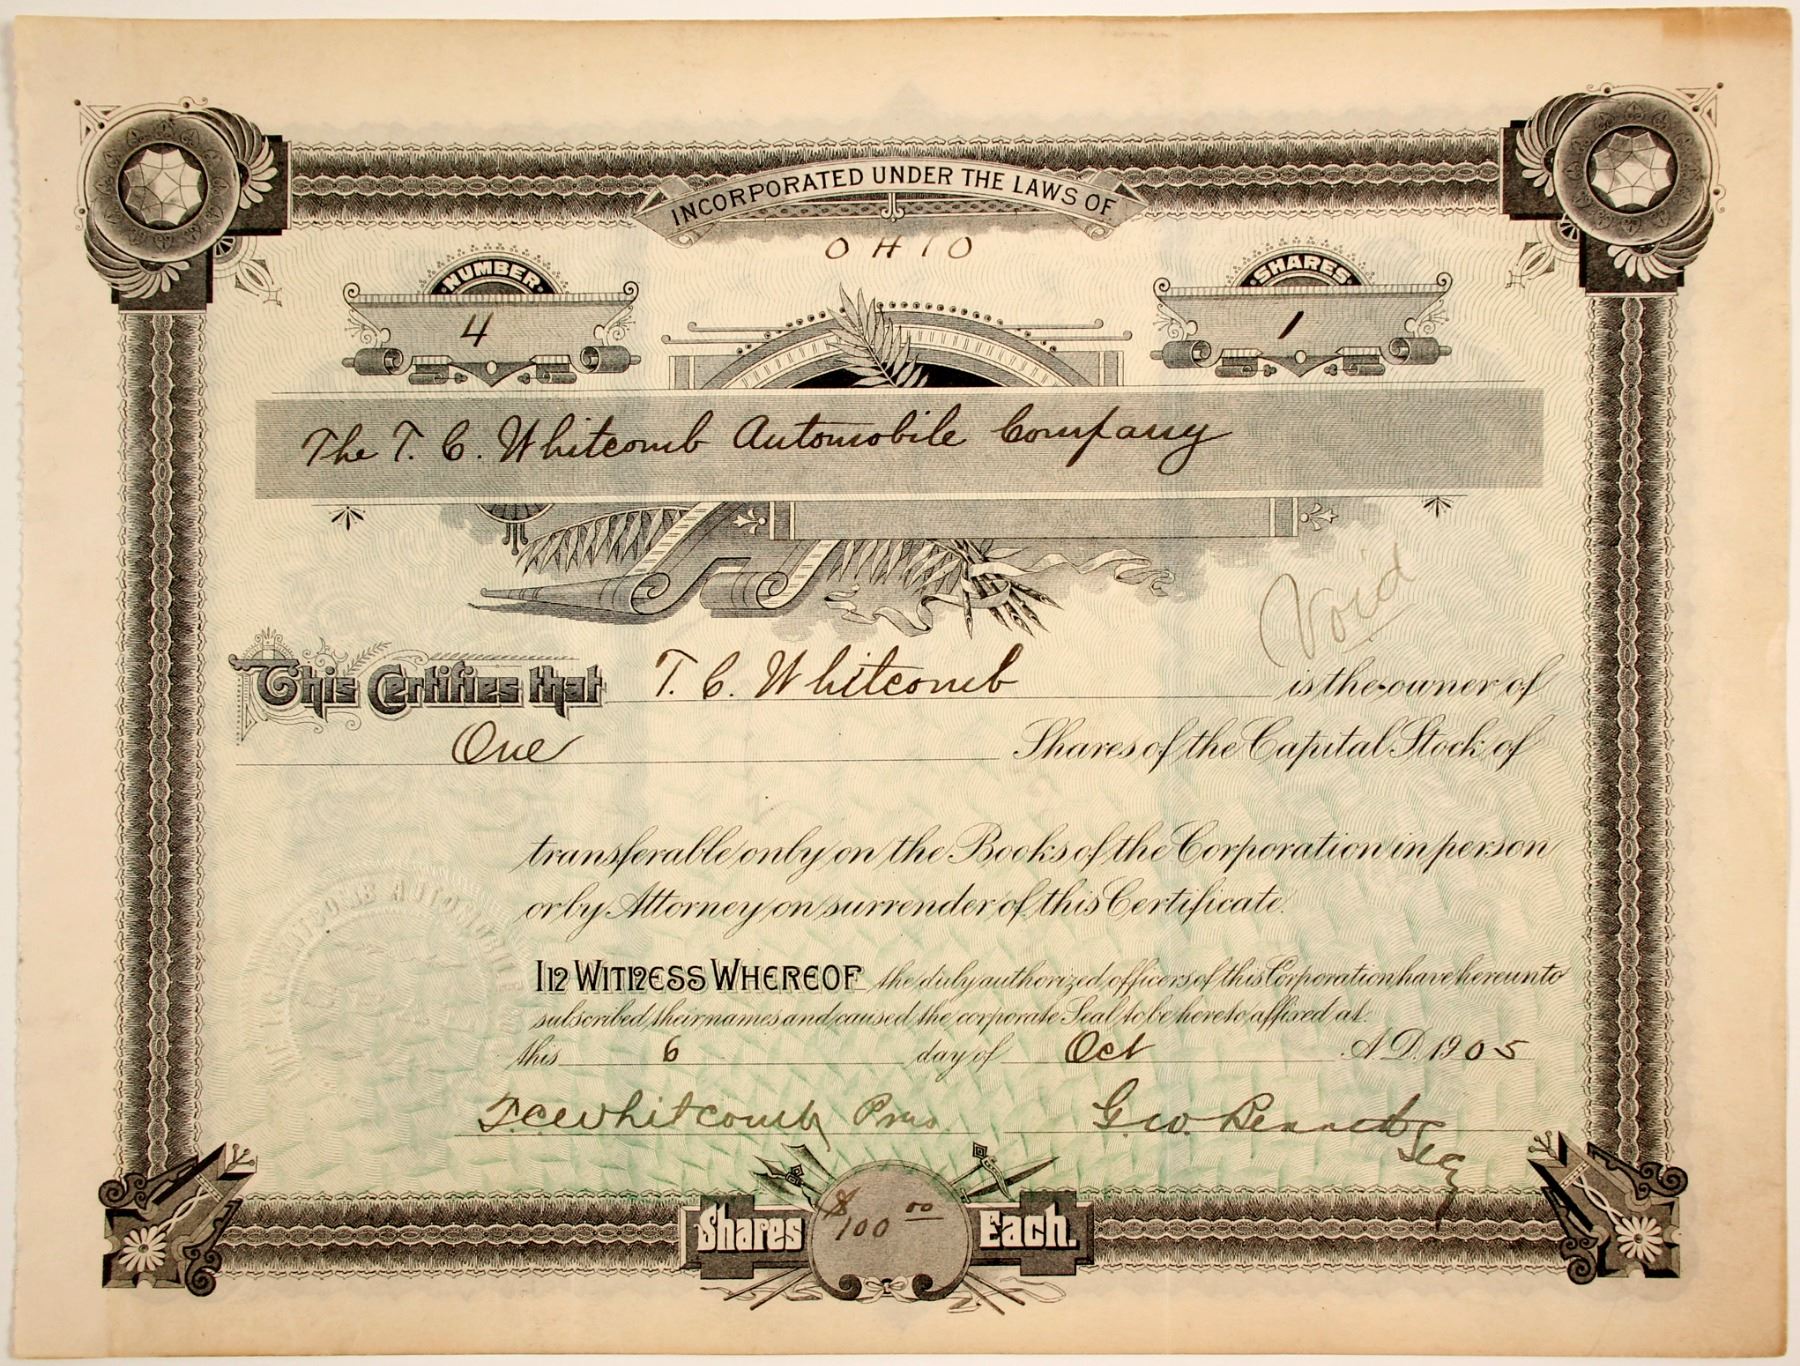 INCORPORATED UNDER THE LAWS OF
OHIO
NUMBER
4
SHARES
1
The T. C. Whitcomb Automobile Company
Void
This Certifies that T. C. Whitcomb is the owner of
One Shares of the Capital Stock of
transferable only on the Books of the Corporation in person
or by Attorney on surrender of this Certificate.
In Witness Whereof the duly authorized officers of this Corporation have hereunto
subscribed their names and caused the corporate Seal to be hereto affixed at
this 6 day of Oct A.D. 1905
T.C. Whitcomb Pres. G. W. Bennett Secy
Shares $100 00 Each.